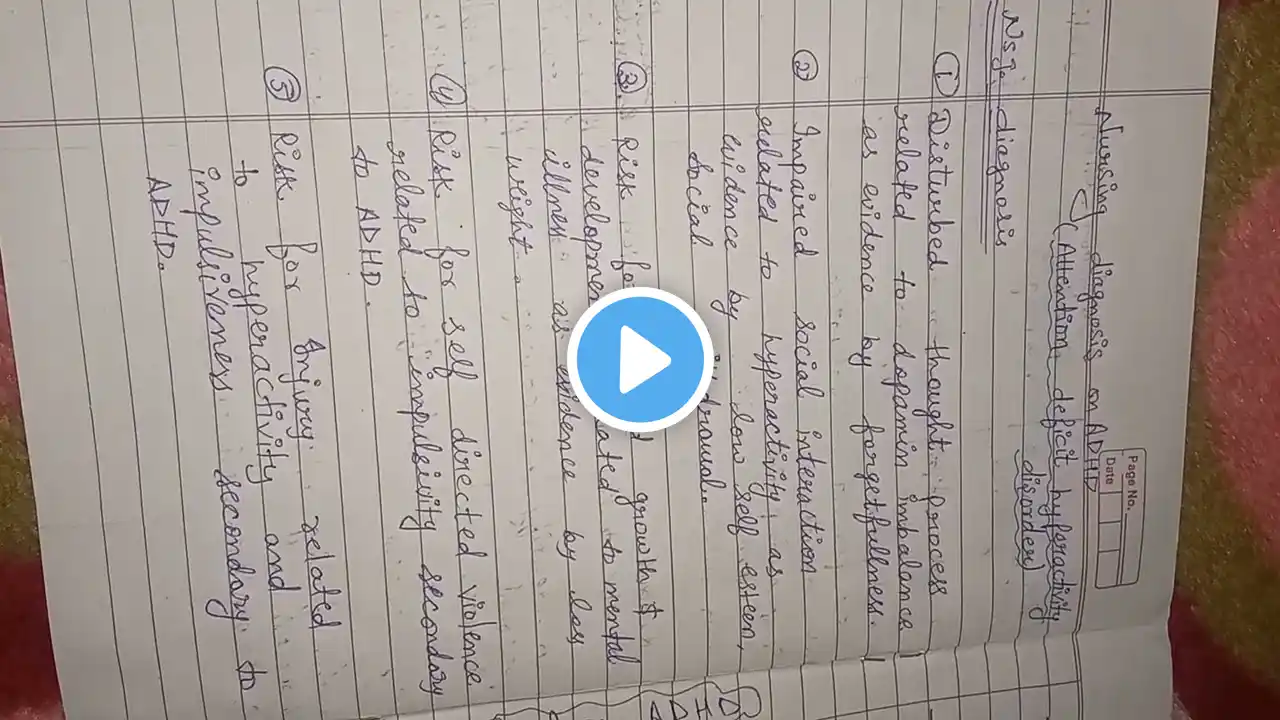 Page No.
Date
Nursing diagnosis on ADHD
(Attention deficit hyperactivity
disorder)
Nsg. diagnosis
① Disturbed thought process
related to dopamin imbalance
as evidence by forgetfullness.
② Impaired social interaction
related to hyperactivity as
evidence by low self esteen,
social
③ Risk growth &
to mental
illness as evidence by less
weight.
④ Risk for self directed violence
related to impulsivity secondary
to ADHD.
⑤ Risk for Injury related
to hyperactivity and
impulsiveness secondary to
ADHD.